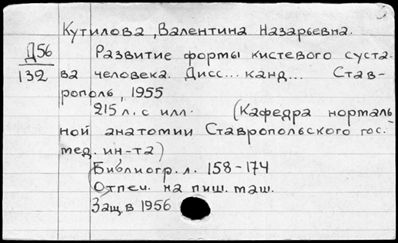 Кутилова, Валентина Назарьевна.
Д56
132
Развитие формы кистевого суста-
ва человека. Дисс... канд... Став-
рополь, 1955
215 л. с илл. (Кафедра нормаль-
ной анатомии Ставропольского гос.
мед. ин-та)
Библиогр. л. 158-174
Отпеч. на пиш. маш.
Защ. в 1956